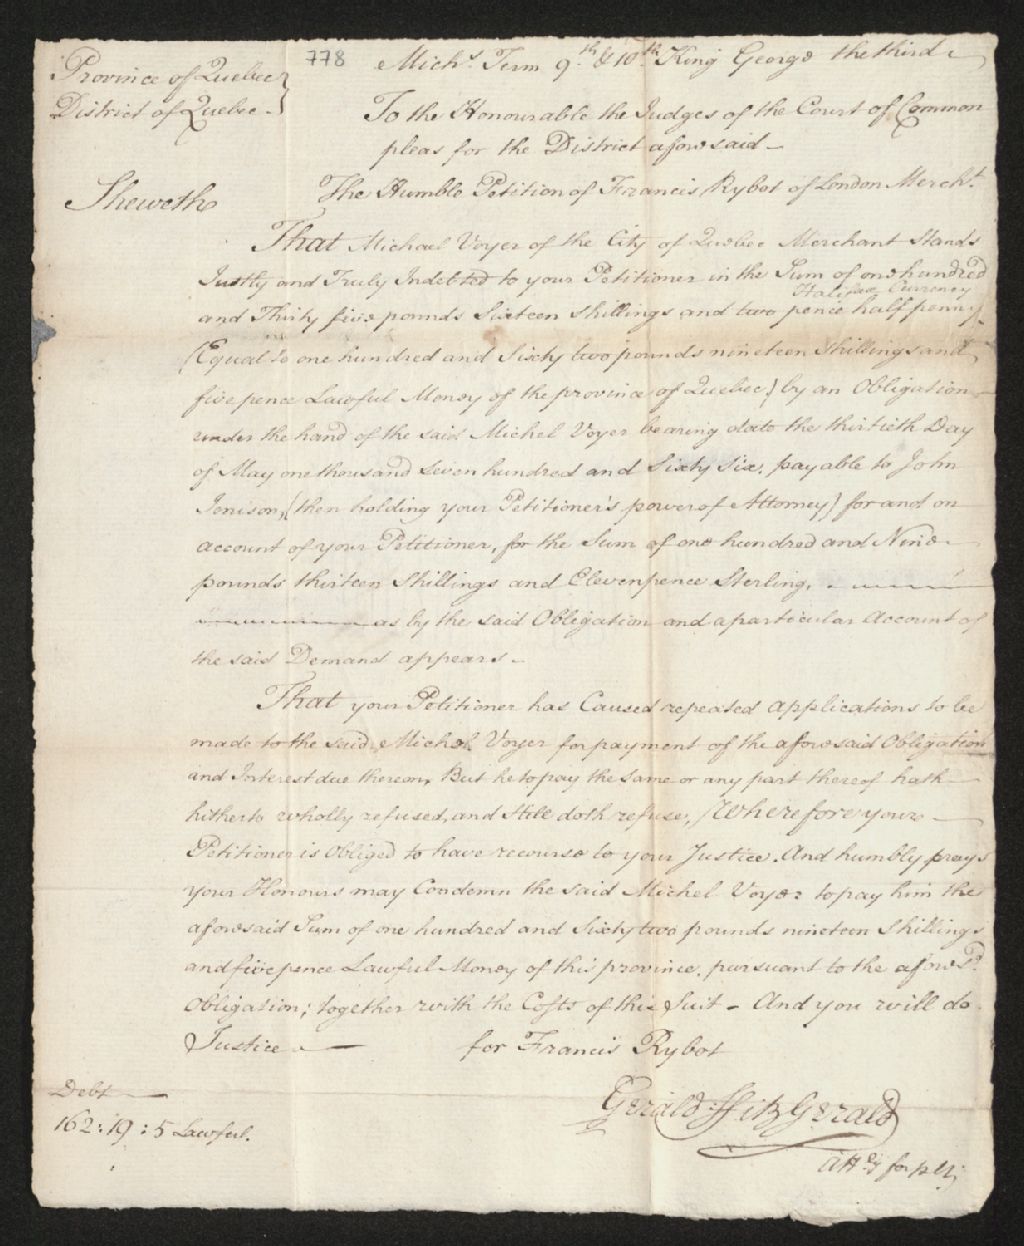 Province of Quebec }
District of Quebec }
778
Michs. Term 9th & 10th King George the third
To the Honourable the Judges of the Court of Common
pleas for the District aforesaid
The Humble Petition of Francis Rybot of London Mercht.
Sheweth
That Michael Voyer of the City of Quebec Merchant Stands
Justly and Truly Indebted to your Petitioner in the Sum of one hundred
Halifax Currency
and Thirty five pounds Sixteen Shillings and two pence half penny
(Equal to one hundred and Sixty two pounds nineteen Shillings and
five pence Lawful Money of the province of Quebec) by an Obligation
under the hand of the said Michel Voyer bearing date the thirtieth Day
of May one thousand Seven hundred and Sixty Six, payable to John
Jenison, (then holding your Petitioner's power of Attorney) for and on
account of your Petitioner, for the Sum of one hundred and Nine
pounds thirteen Shillings and Elevenpence Sterling,
as by the said Obligation and a particular Account of
the said Demand appears.
That your Petitioner has Caused repeated applications to be
made to the said Michel Voyer for payment of the aforesaid Obligation
and Interest due thereon, But he to pay the Same or any part thereof hath
hitherto wholly refused, and Still doth refuse, Wherefore your
Petitioner is Obliged to have recourse to your Justice. And humbly prays
your Honours may Condemn the said Michel Voyer to pay him the
aforesaid Sum of one hundred and Sixty two pounds nineteen Shillings
and five pence Lawful Money of this province, pursuant to the aforesd.
Obligation; together with the Costs of this Suit - And you will do
Justice
for Francis Rybot
Gerald FitzGerald
Atty for plt
Debt
162 : 19 : 5 Lawful.